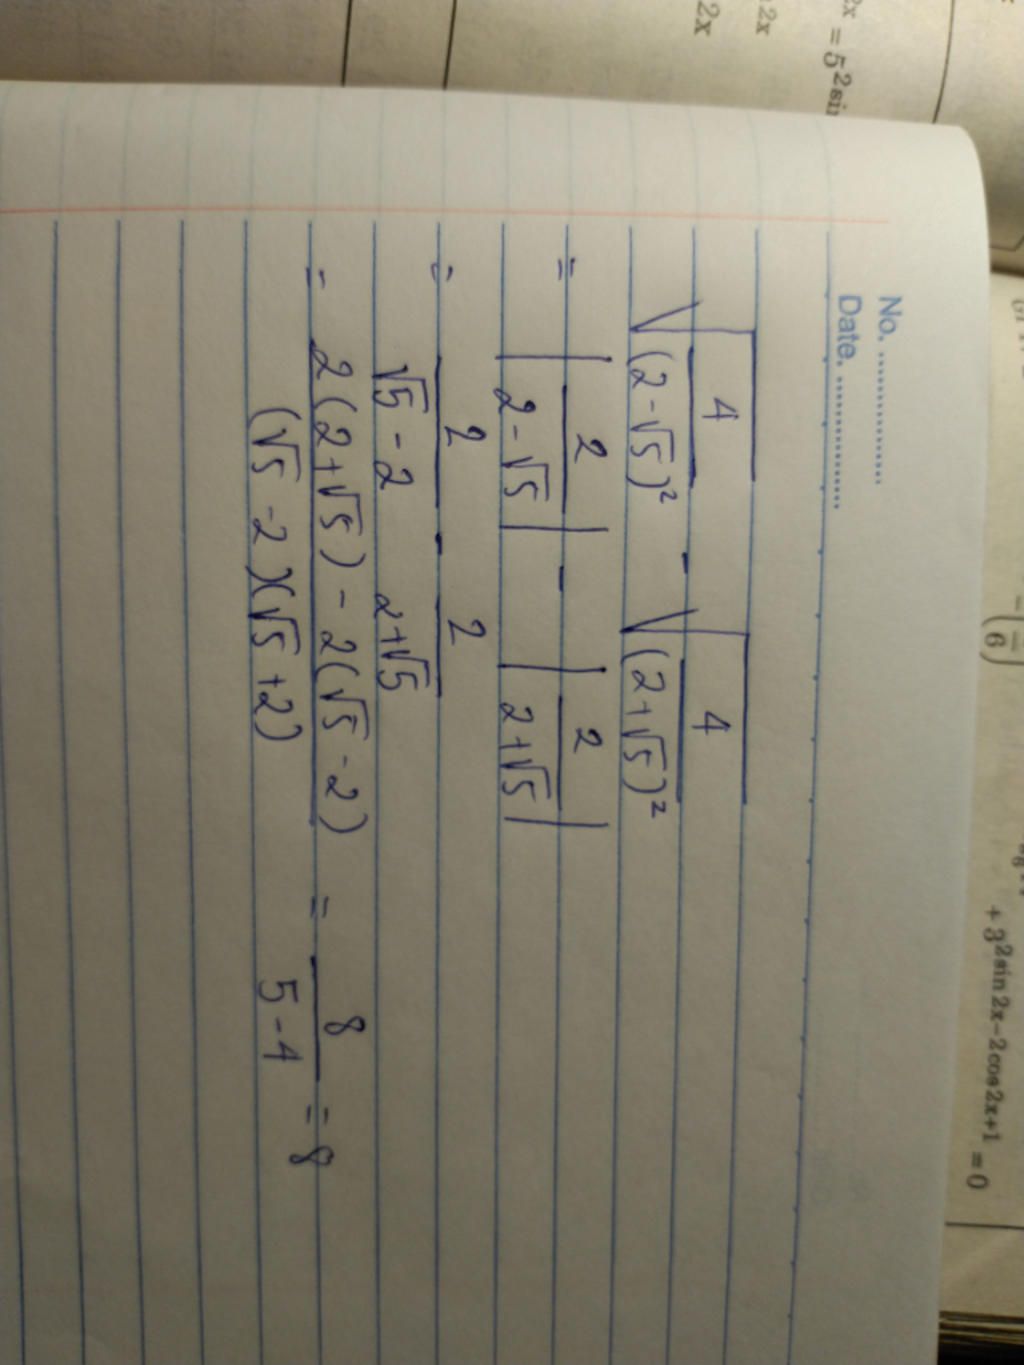 2x = 5^2sin
2x
2x
+ 3^2sin 2x-2cos 2x+1 = 0
No. ..................
Date. ..................
√(4/(2-√5)²) - √(4/(2+√5)²)
= |2/(2-√5)| - |2/(2+√5)|
= 2/(√5-2) - 2/(2+√5)
= (2(2+√5) - 2(√5-2))/((√5-2)(√5+2)) = 8/(5-4) = 8